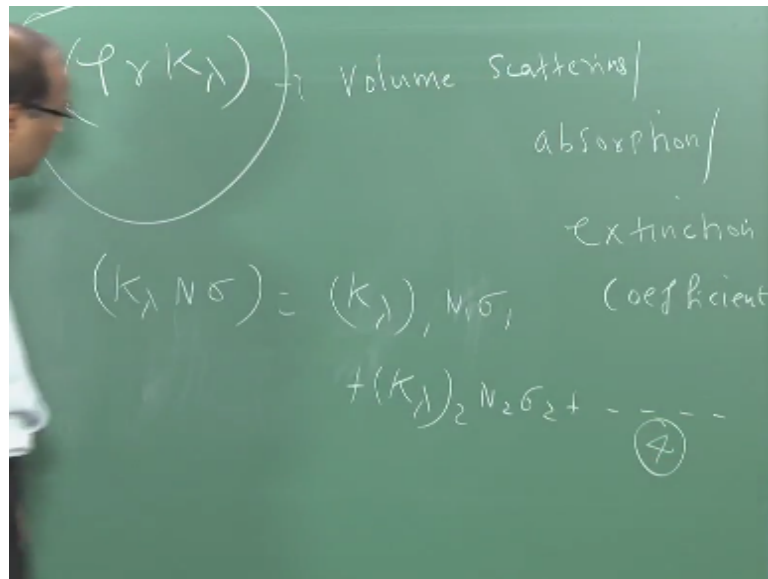 (φ r K_λ) → Volume Scattering/
absorption/
extinction
Coefficient
(K_λ N σ) = (K_λ)₁ N₁ σ₁
+ (K_λ)₂ N₂ σ₂ + - - - -
4